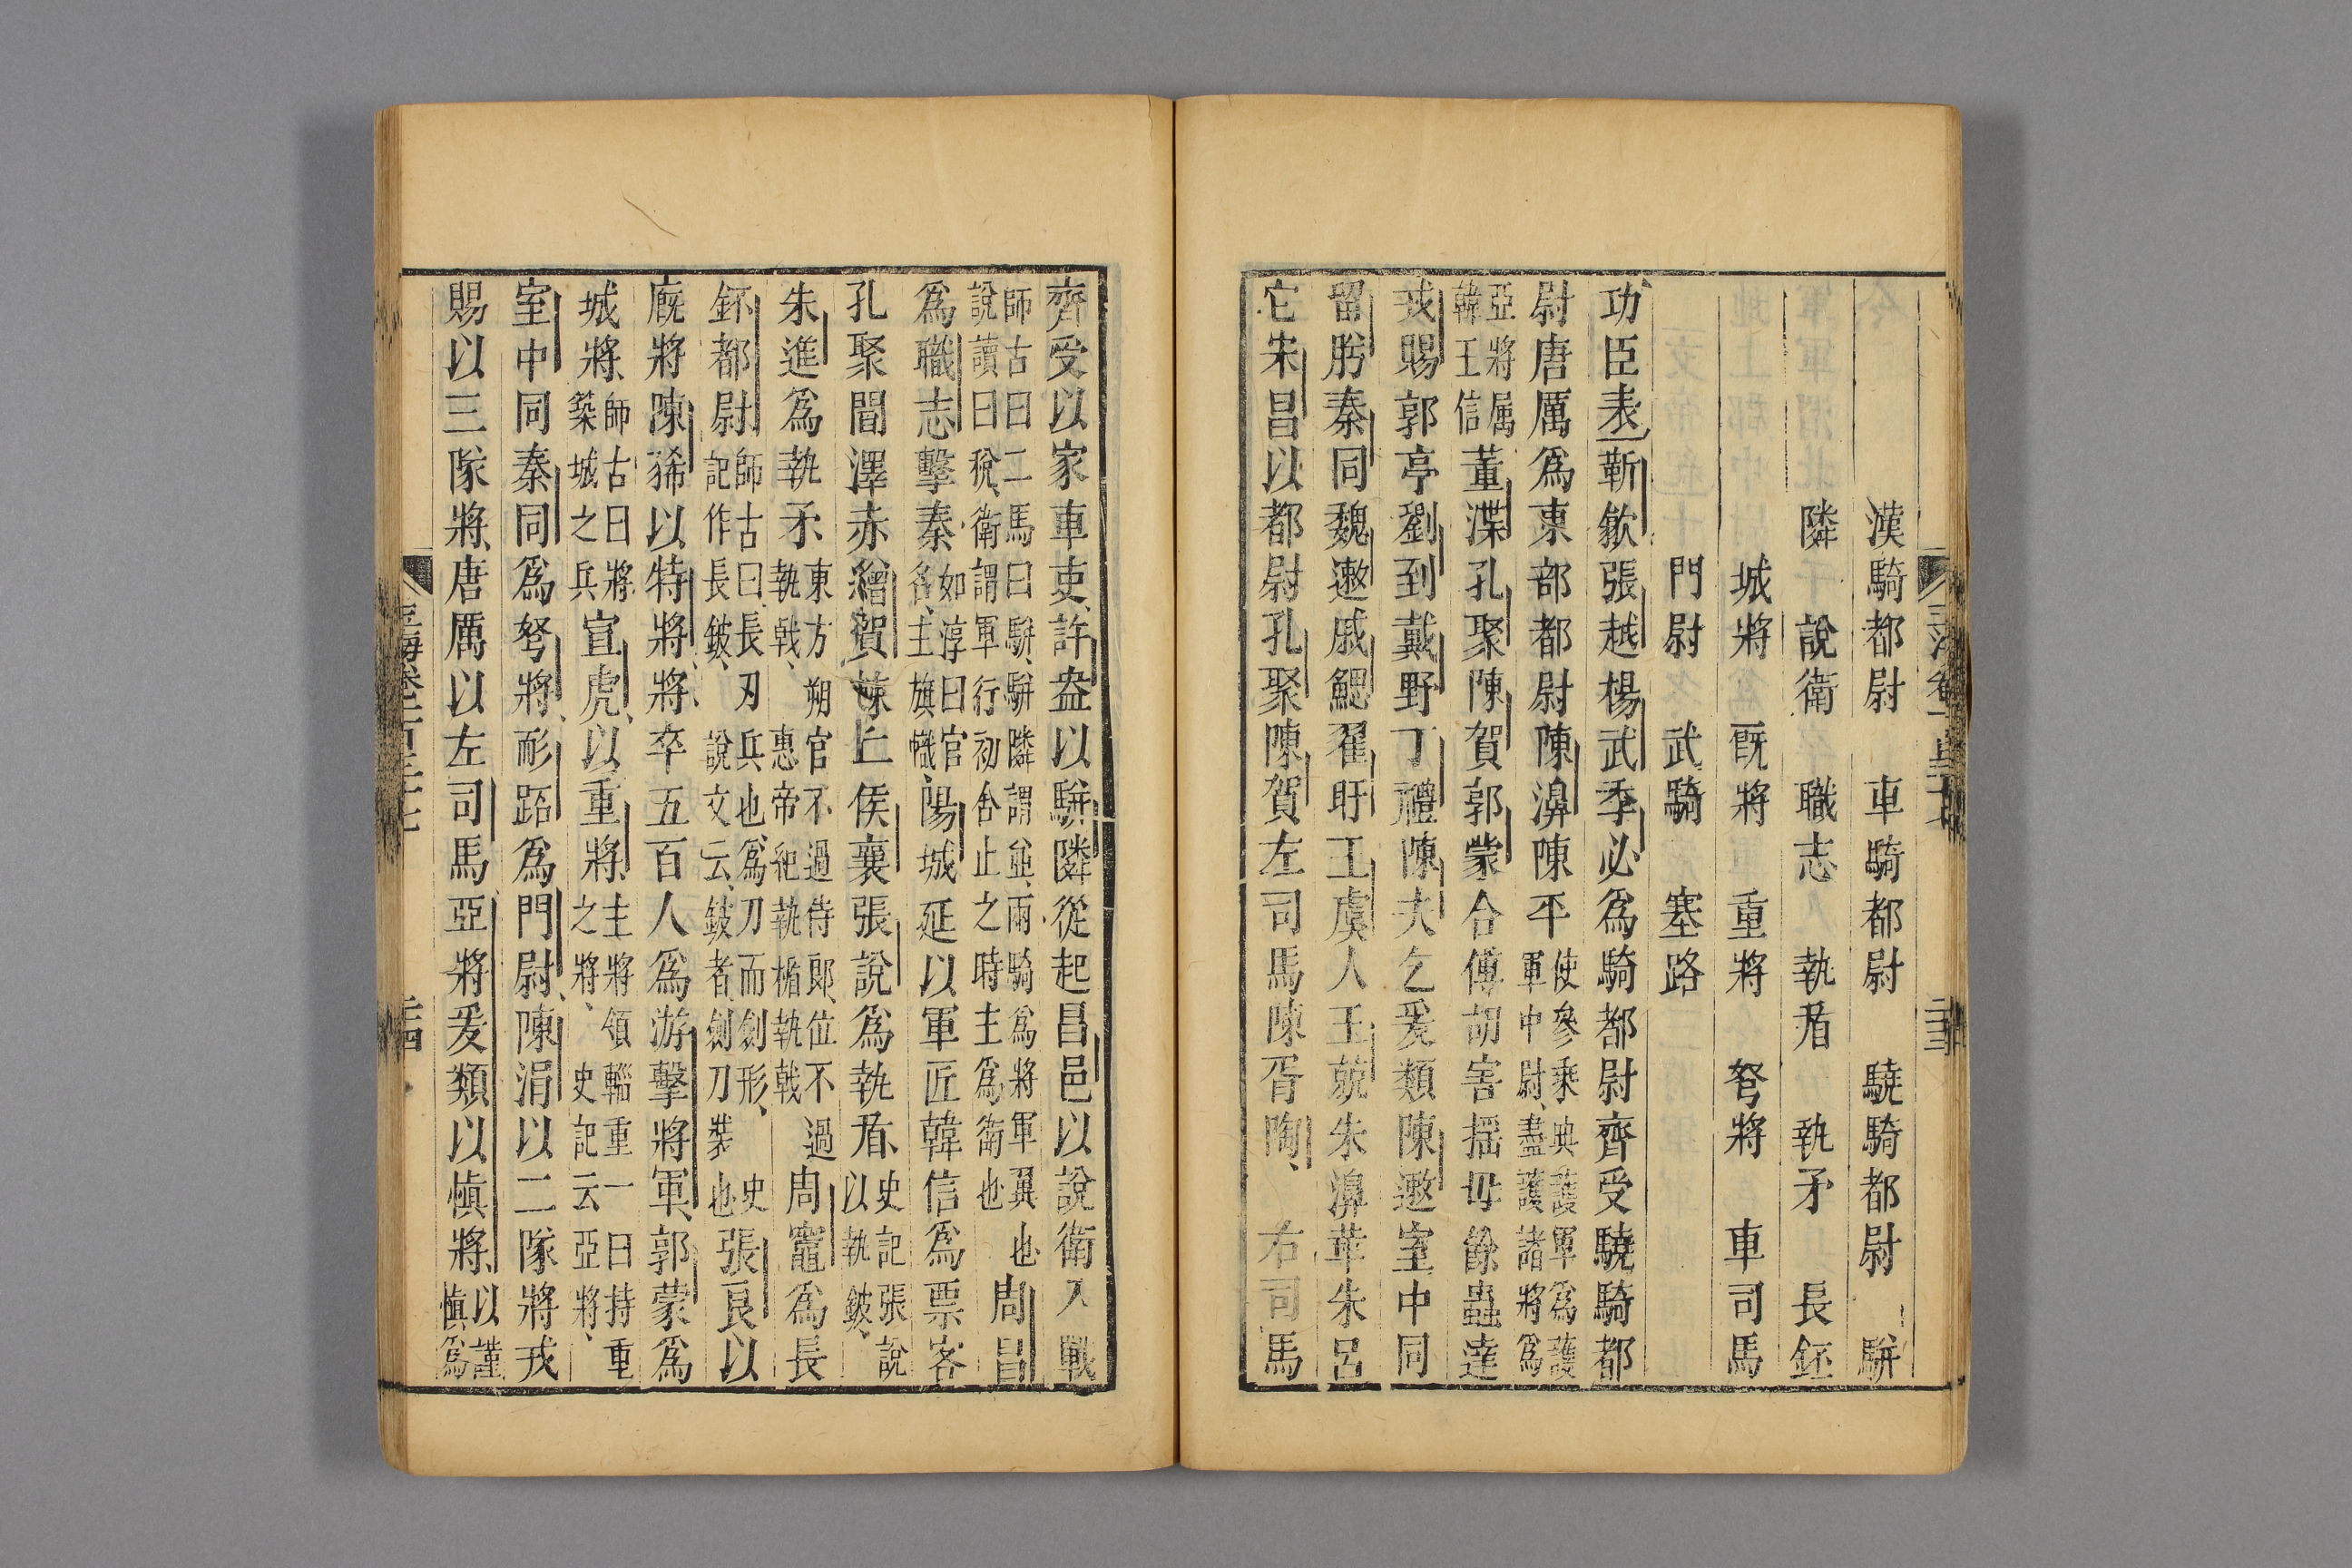 漢騎都尉　車騎都尉　驍騎都尉　騈
隣　說衛　職志　執盾　執矛　長鈈
城將　厩將　重將　弩將　車司馬
門尉　武騎　塞路
功臣表靳歙張越楊武季必爲騎都尉齊受驍騎都
尉唐厲爲東部都尉陳濞陳平使參乘典護軍爲護軍中尉盡護諸將爲
亞將属韓王信董渫孔聚陳賀郭蒙合傅胡害揺毋餘蟲達
戎賜郭亭劉到戴野丁禮陳夫乞爰類陳遫室中同
留肹秦同魏遫戚鰓翟盱王虞人王競朱濞華朱呂
它宋昌以都尉孔聚陳賀左司馬陳胥陶右司馬
齊受以家車吏許盎以騈隣從起昌邑以說衛入戰
師古曰二馬曰騈騈隣謂並兩騎爲將軍翼也說讀曰稅衛謂軍行初舍止之時主爲衛也周昌
爲職志擊秦如淳曰官名主旗幟陽城延以軍匠韓信爲票客
孔聚閻澤赤繒賀棘丘侯襄張說爲執盾史記張說以執鈹
朱進爲執矛東方朔官不過侍郎位不過執戟惠帝紀執楯執戟周竈爲長
鈈都尉師古曰長刃兵也爲刀而劍形史記作長鈹說文云鈹者劍刀裝也張良以
廐將陳豨以特將將卒五百人爲游擊將軍郭蒙爲
城將師古曰將築城之兵宣虎以重將主將領輜重一曰持重之將史記云亞將
室中同秦同爲弩將彤跖爲門尉陳涓以二隊將戎
賜以三隊將唐厲以左司馬亞將爰類以愼將以謹愼爲